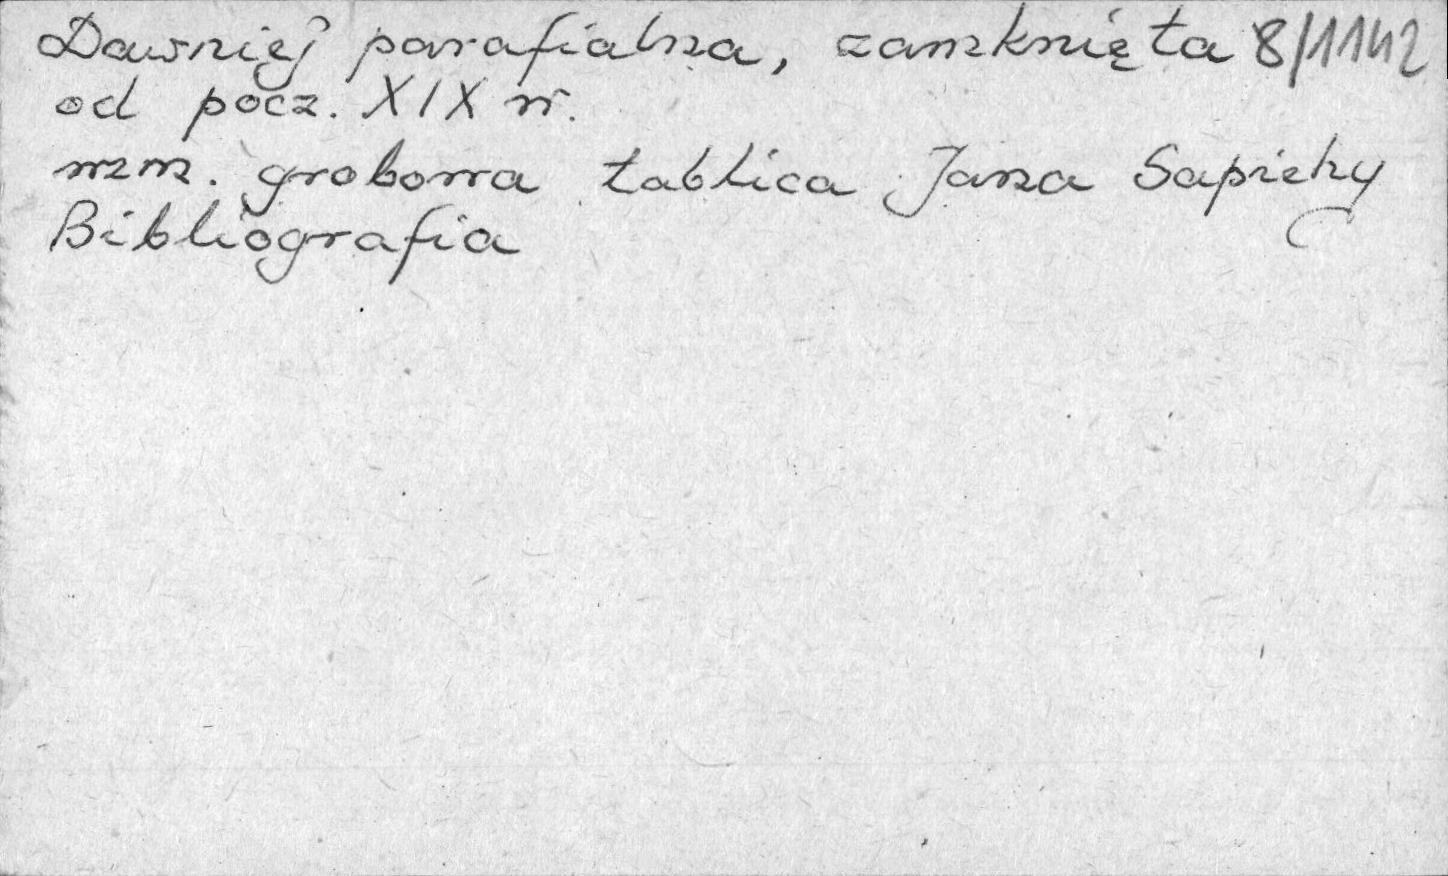 Dawniej parafialna, zamknięta 8/1142
od pocz. XIX w.
wzm. grobowa tablica Jana Sapiehy
Bibliografia